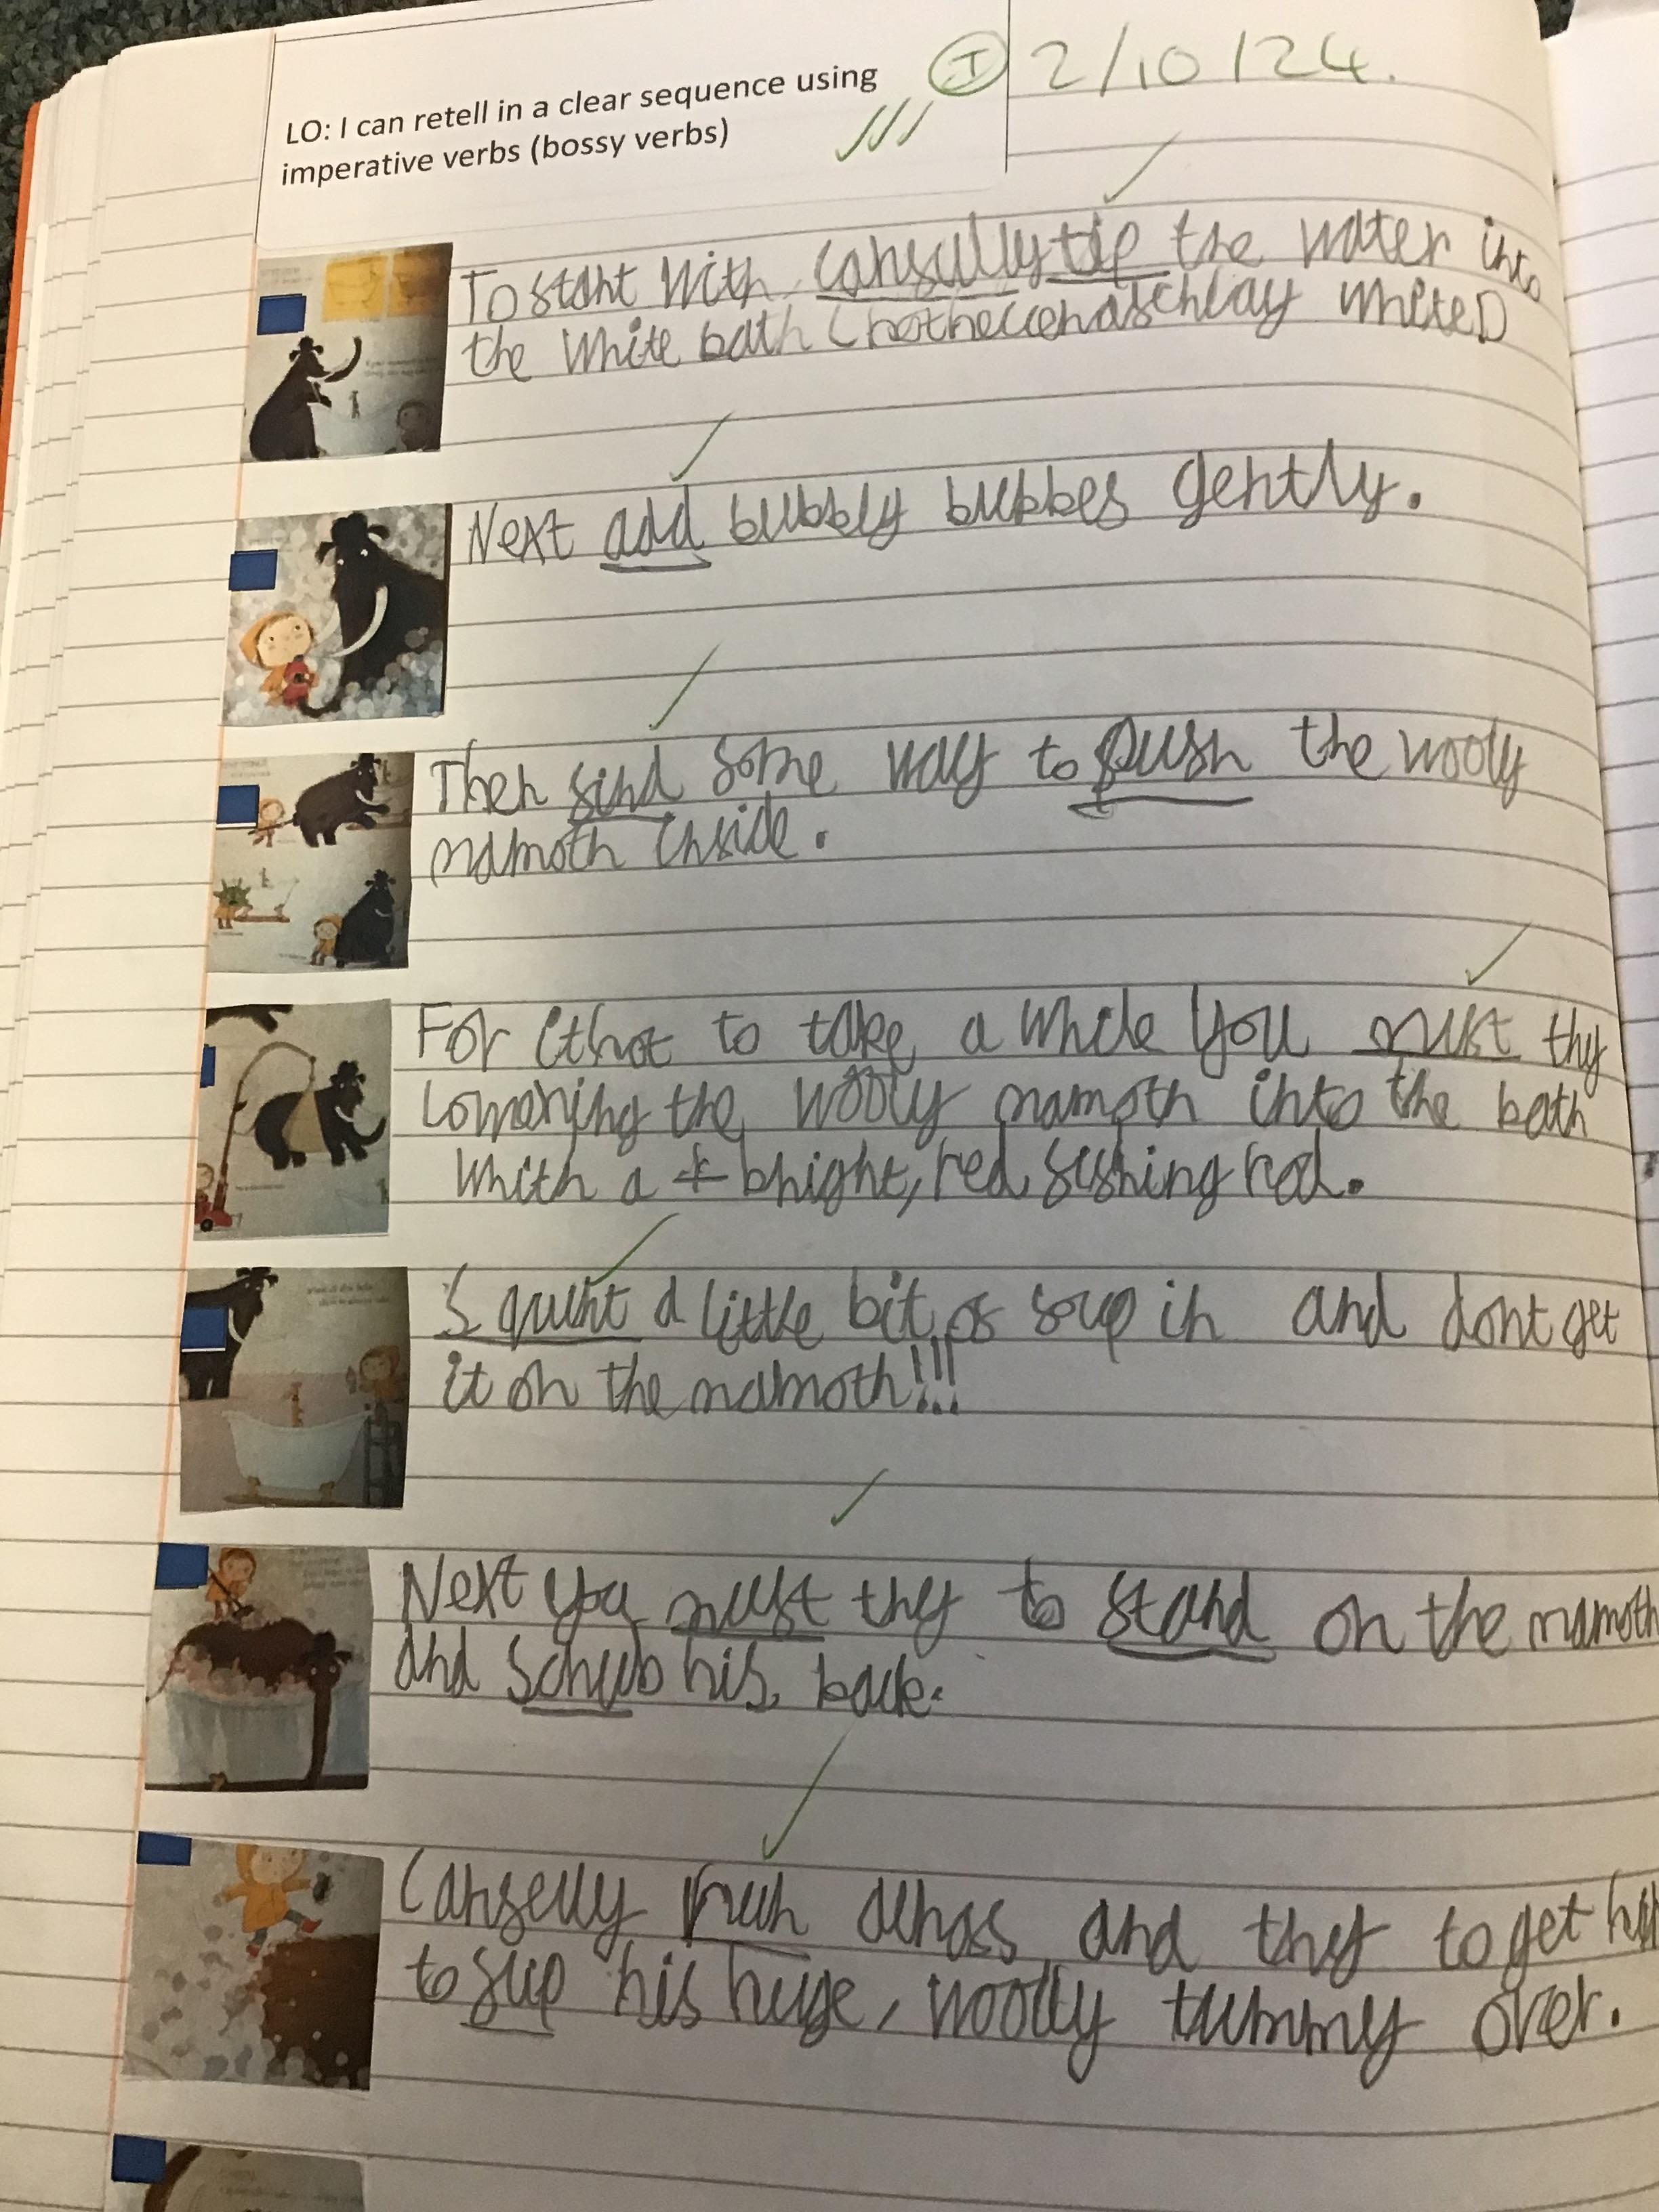 LO: I can retell in a clear sequence using
imperative verbs (bossy verbs)
I
2/10/24.
To start with carfully tip the water into
the white bath
Next add bubbly bubbes gently.
Then find some way to push the wooly
mamoth inside.
For to take a while you must try
lowering the wooly mamoth into the bath
whith a bright, red fishing rod.
Squirt a little bit of soup in and dont get
it on the mamoth!!!
Next you must try to stand on the mamoth
and schrub his back.
Carfelly run across and try to get him
to flip his huge, woolly tummy over.